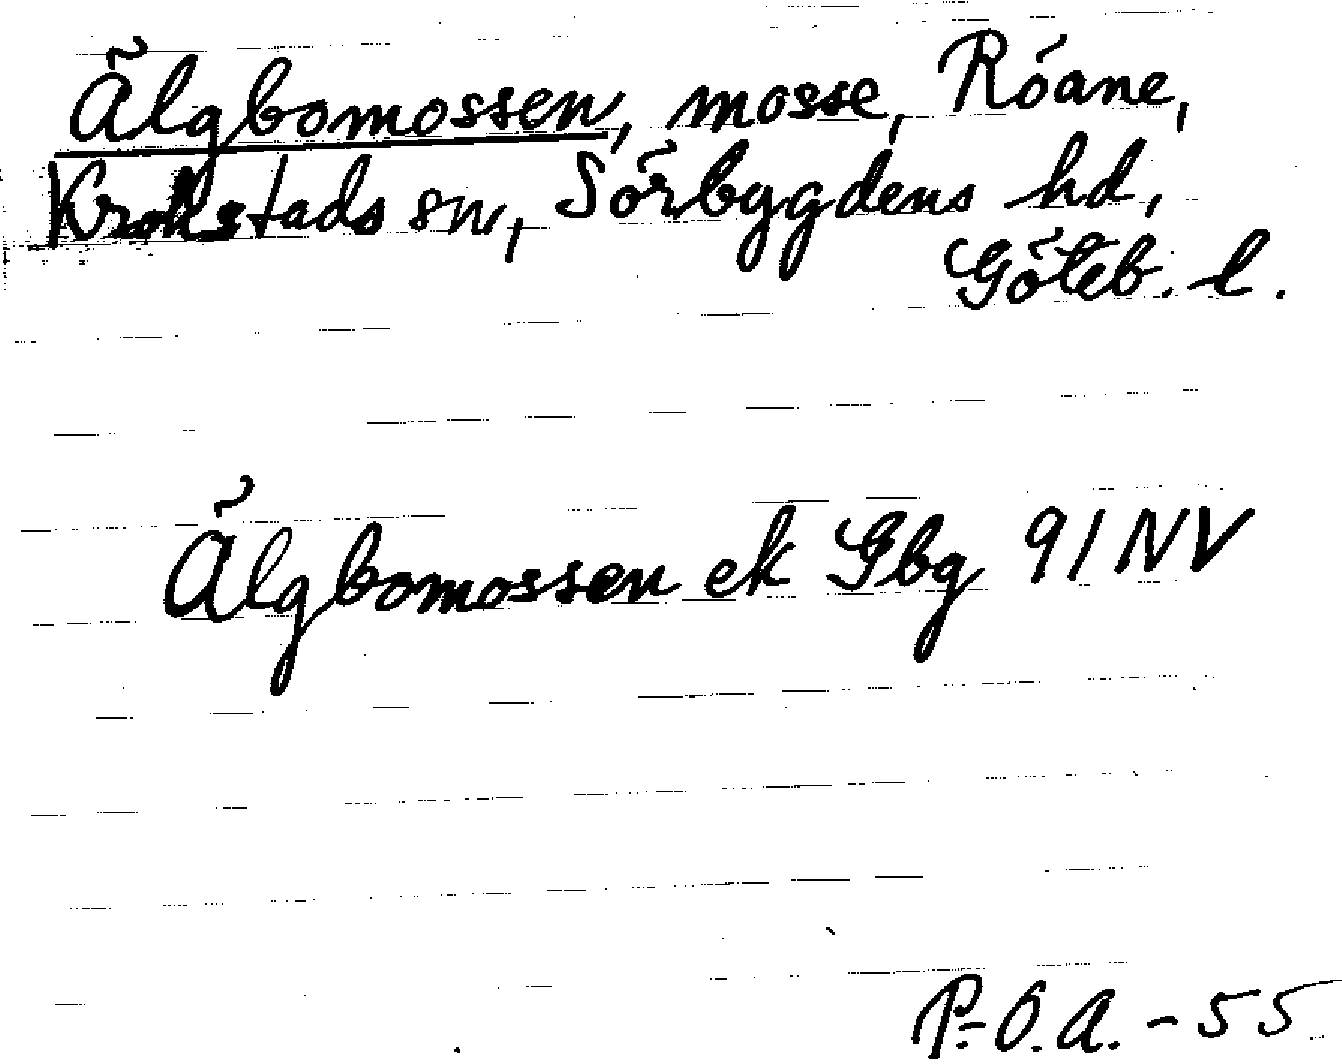 Älgbomossen, mosse, Röane,
Krokstads sn, Sörbygdens hd,
Göteb. l.
Älgbomossen ek Gbg 91 NV
P.-O.A. - 55